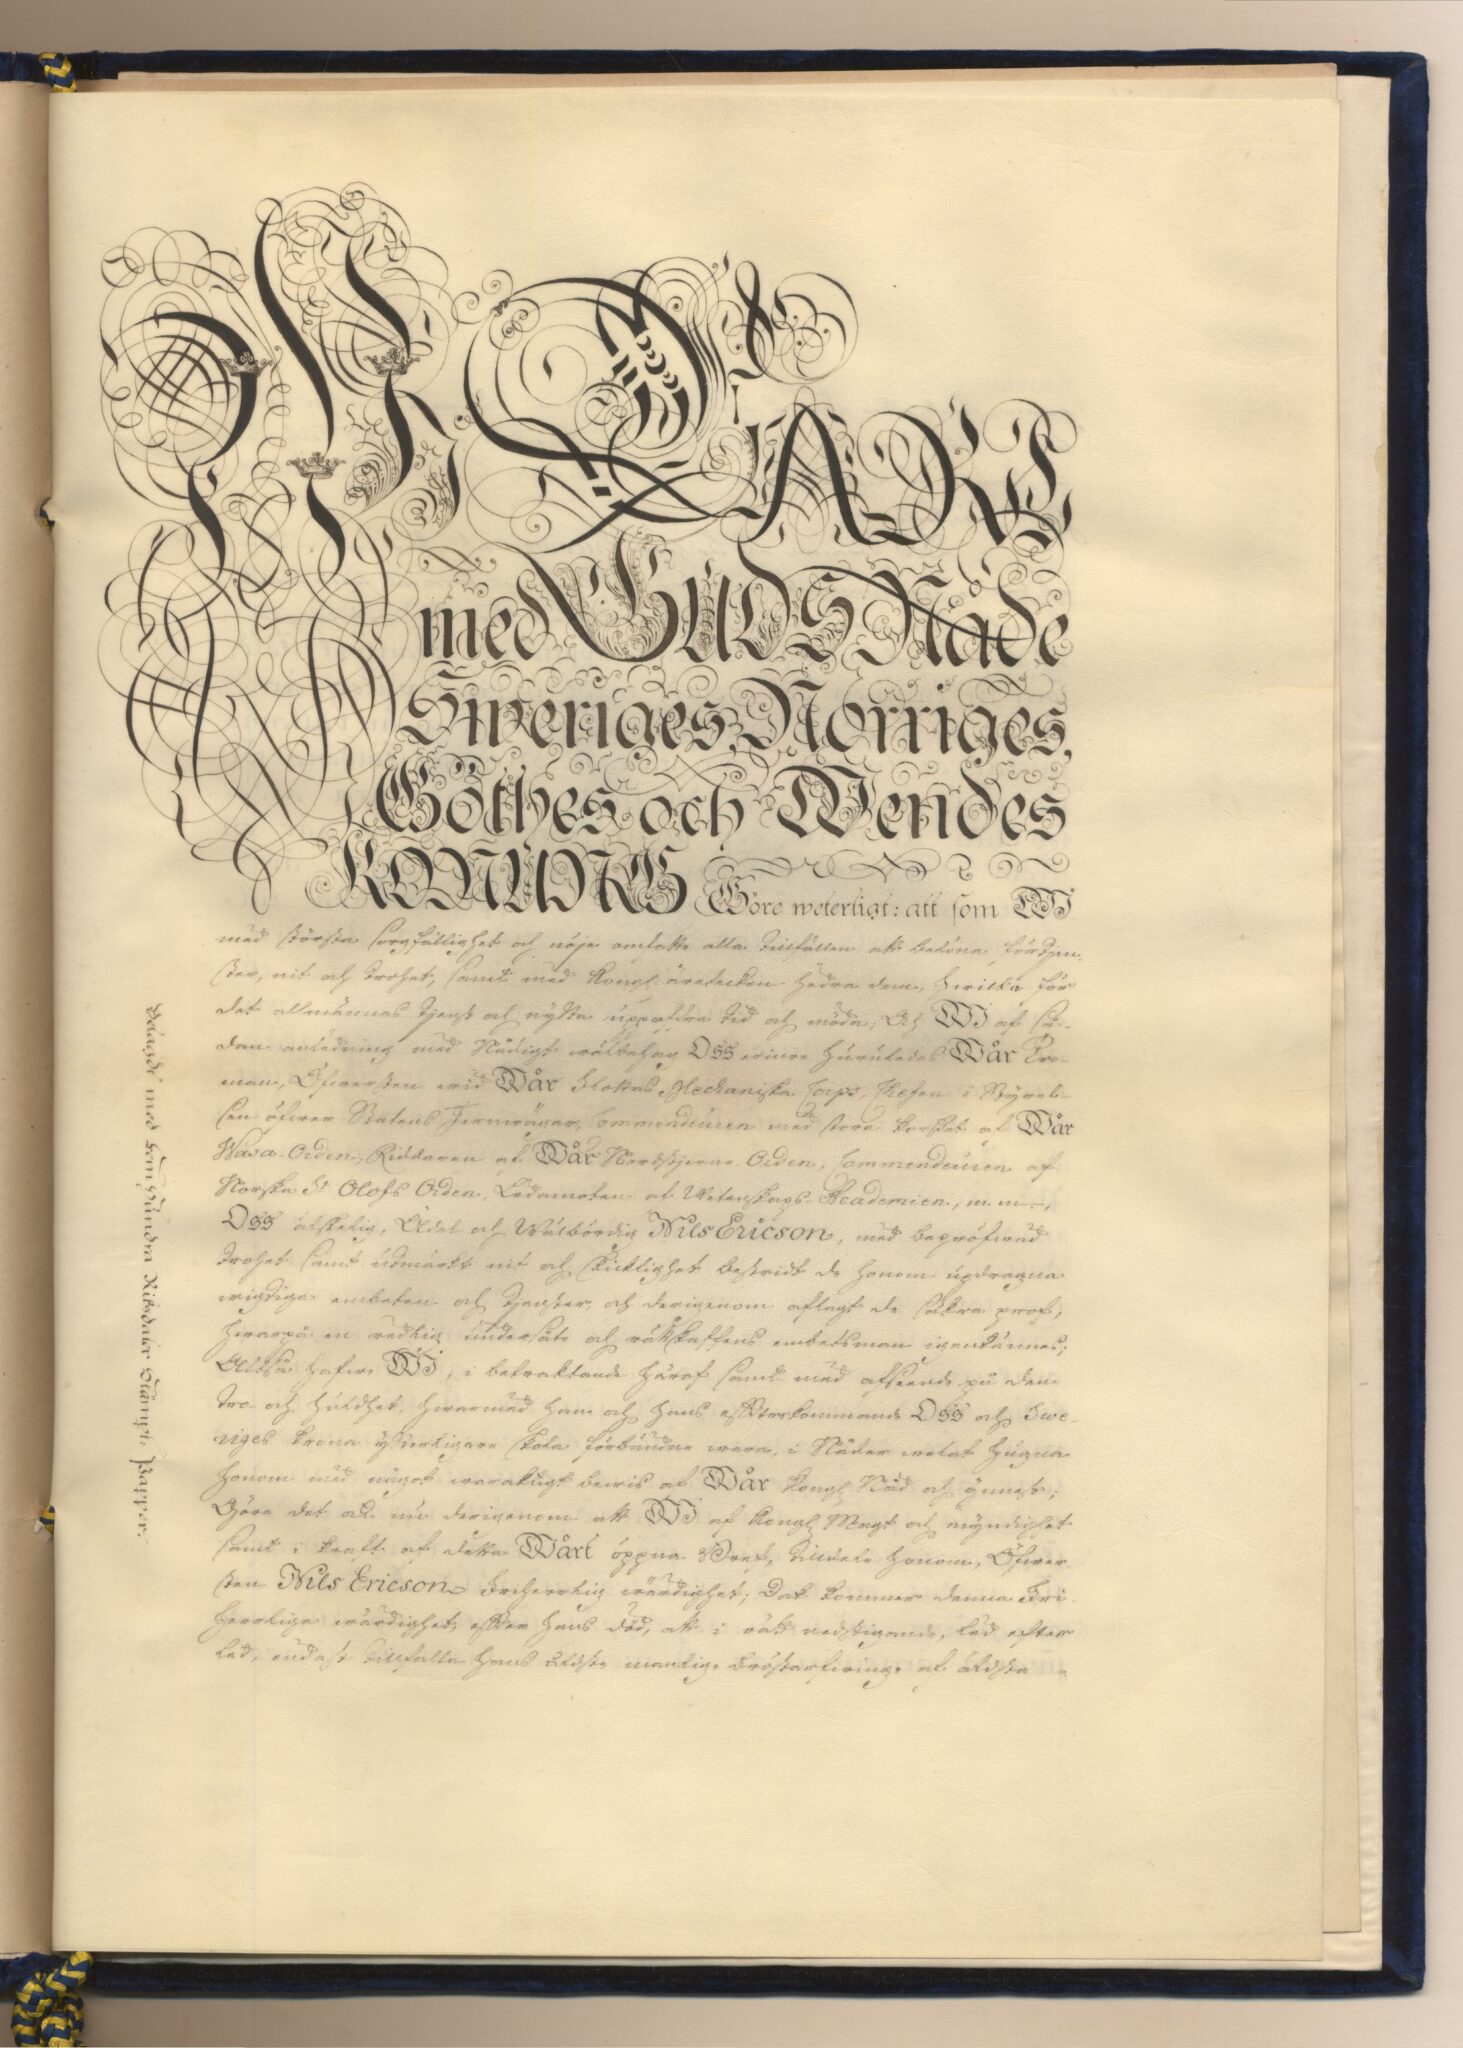 Wi CARL
med Guds Nåde
Sweriges, Norriges,
Göthes och Wendes
KONUNG Göre weterligt: att som Wi
med största sorgfällighet och nöje omfatta alla tillfällen att belöna förtjen-
ster, nit och trohet, samt med Kongl. äretecken hedra dem, hwilka för
det allmännas tjenst och nytta uppoffra tid och möda, Och Wi af så-
dan anledning med Nådigt wälbehag Oss erinre huruledes Wår Tro-
man, Öfwersten wid Wår Flottas Mechaniska Corps, Chefen i Styrel-
sen öfwer Statens Jernwägar, Commendeuren med stora korset af Wår
Wasa-Orden, Riddaren af Wår Nordstjerne-Orden, Commendeuren af
Norska St Olofs Orden, Ledamoten af Wetenskaps-Academien, m. m.,
Oss älskelig, Ädel och Wälbördig Nils Ericson, med bepröfwad
trohet samt utmärkt nit och skicklighet bestridt de honom updragna
wigtiga embeten och tjenster, och derigenom aflagt de säkra prof,
hwarpå en redlig undersåte och rättskaffens embetsman igenkännes;
Alltså hafwe Wi, i betraktande häraf samt med afseende på den
tro- och huldhet, hwarmed han och hans efterkommande Oss och Swe-
riges Krona ytterligare skola förbundne wara, i Nåder welat hugna
honom med något waraktigt bewis af Wår Kongl. Nåd och ynnest;
Göre det ock nu derigenom att Wi af Kongl. Magt och myndighet
samt i kraft af detta Wårt öppna Bref, tilldele honom, Öfwer-
sten Nils Ericson Friherrlig wärdighet; Dock kommer denna Fri-
herrliga wärdighet, efter hans död, att i rätt nedstigande led efter
led, endast tillfalla hans äldste manlige bröstarfwinge af äldsta
Belagdt med Fem Hundra Riksdaler Stämpl: Papper.